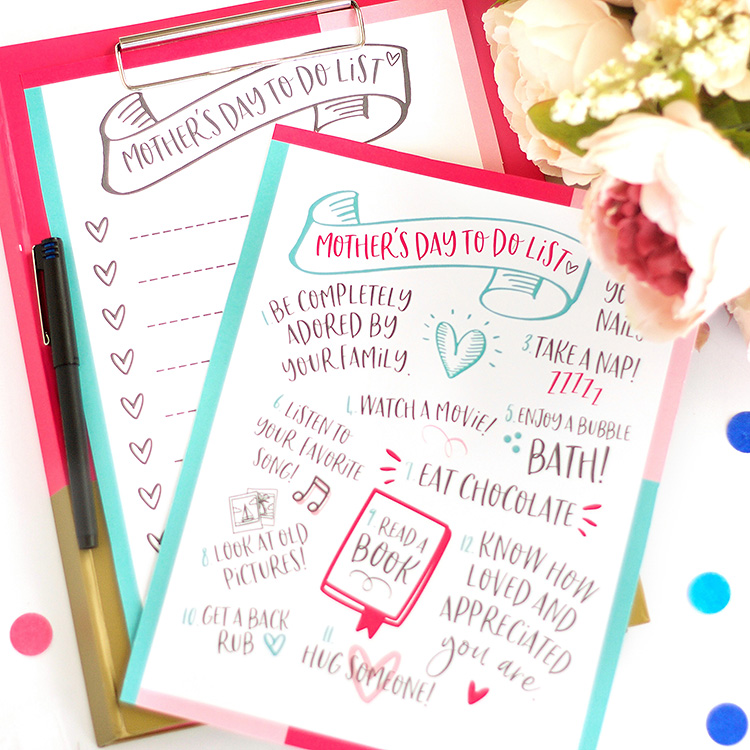 MOTHER'S DAY TO DO LIST
MOTHER'S DAY TO DO LIST
1 BE COMPLETELY
ADORED BY
YOUR FAMILY.
NAILS
3. TAKE A NAP!
ZZZZZ
4. WATCH A MOVIE!
5. ENJOY A BUBBLE
BATH!
6. LISTEN TO
YOUR FAVORITE
SONG!
7. EAT CHOCOLATE
8 LOOK AT OLD
PICTURES!
9. READ A
BOOK
10 GET A BACK
RUB
11 HUG SOMEONE!
12. KNOW HOW
LOVED AND
APPRECIATED
you are.